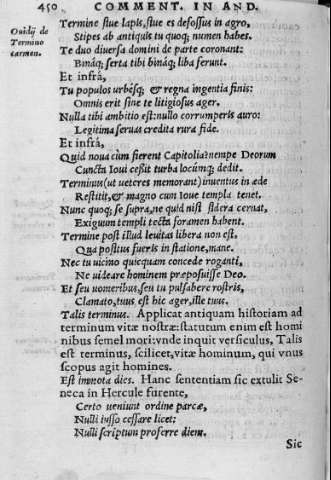 450 COMMENT. IN AND.
Ouidij de
Termino
carmen.
Termine siue lapis, siue es defossus in agro,
Stipes ab antiquis tu quoq; numen habes.
Te duo diuersa domini de parte coronant:
Bináq; serta tibi bináq; liba ferunt.
Et infrà,
Tu populos urbésq; & regna ingentia finis:
Omnis erit sine te litigiosus ager.
Nulla tibi ambitio est: nullo corrumperis auro:
Legitima seruas credita rura fide.
Et infrà,
Quid noua cùm fierent Capitolia? nempe Deorum
Cuncta Ioui cessit turba locúmq; dedit.
Terminus (ut ueteres memorant) inuentus in æde
Restitit, & magno cum Ioue templa tenet.
Nunc quoq; se supra, ne quid nisi sidera cernat,
Exiguum templi tecta foramen habent.
Termine post illud leuitas libera non est,
Qua positus fueris in statione, mane.
Nec tu uicino quicquam concede roganti,
Ne uideare hominem præposuisse Deo.
Et seu uomeribus, seu tu pulsabere rostris,
Clamato, tuus est hic ager, ille tuus.
Talis terminus. Applicat antiquam historiam ad
terminum vitæ nostræ: statutum enim est homi
nibus semel mori: vnde inquit versiculus, Talis
est terminus, scilicet, vitæ hominum, qui vnus
scopus agit homines.
Est immota dies. Hanc sententiam sic extulit Se-
neca in Hercule furente,
Certo ueniunt ordine parcæ,
Nulli iusso cessare licet:
Nulli scriptum proferre diem.
Sic